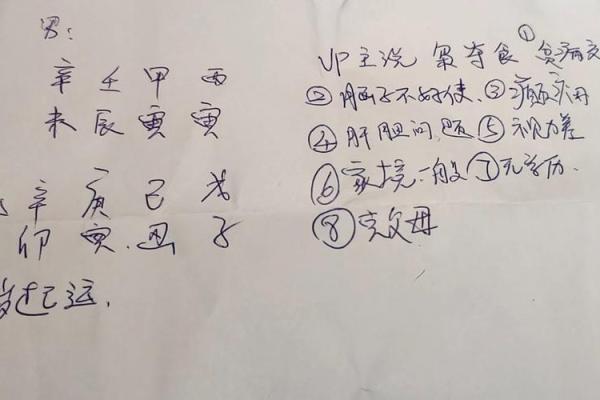 男:
辛 壬 甲 丙
未 辰 寅 寅
辛 庚 己 戊
卯 寅.丑 子
岁起运.
VP主说 枭夺食 ①贫病交
②脑子不好使.③癫痫
④肝胆问题⑤视力差
⑥家境一般⑦无学历.
⑧克父母